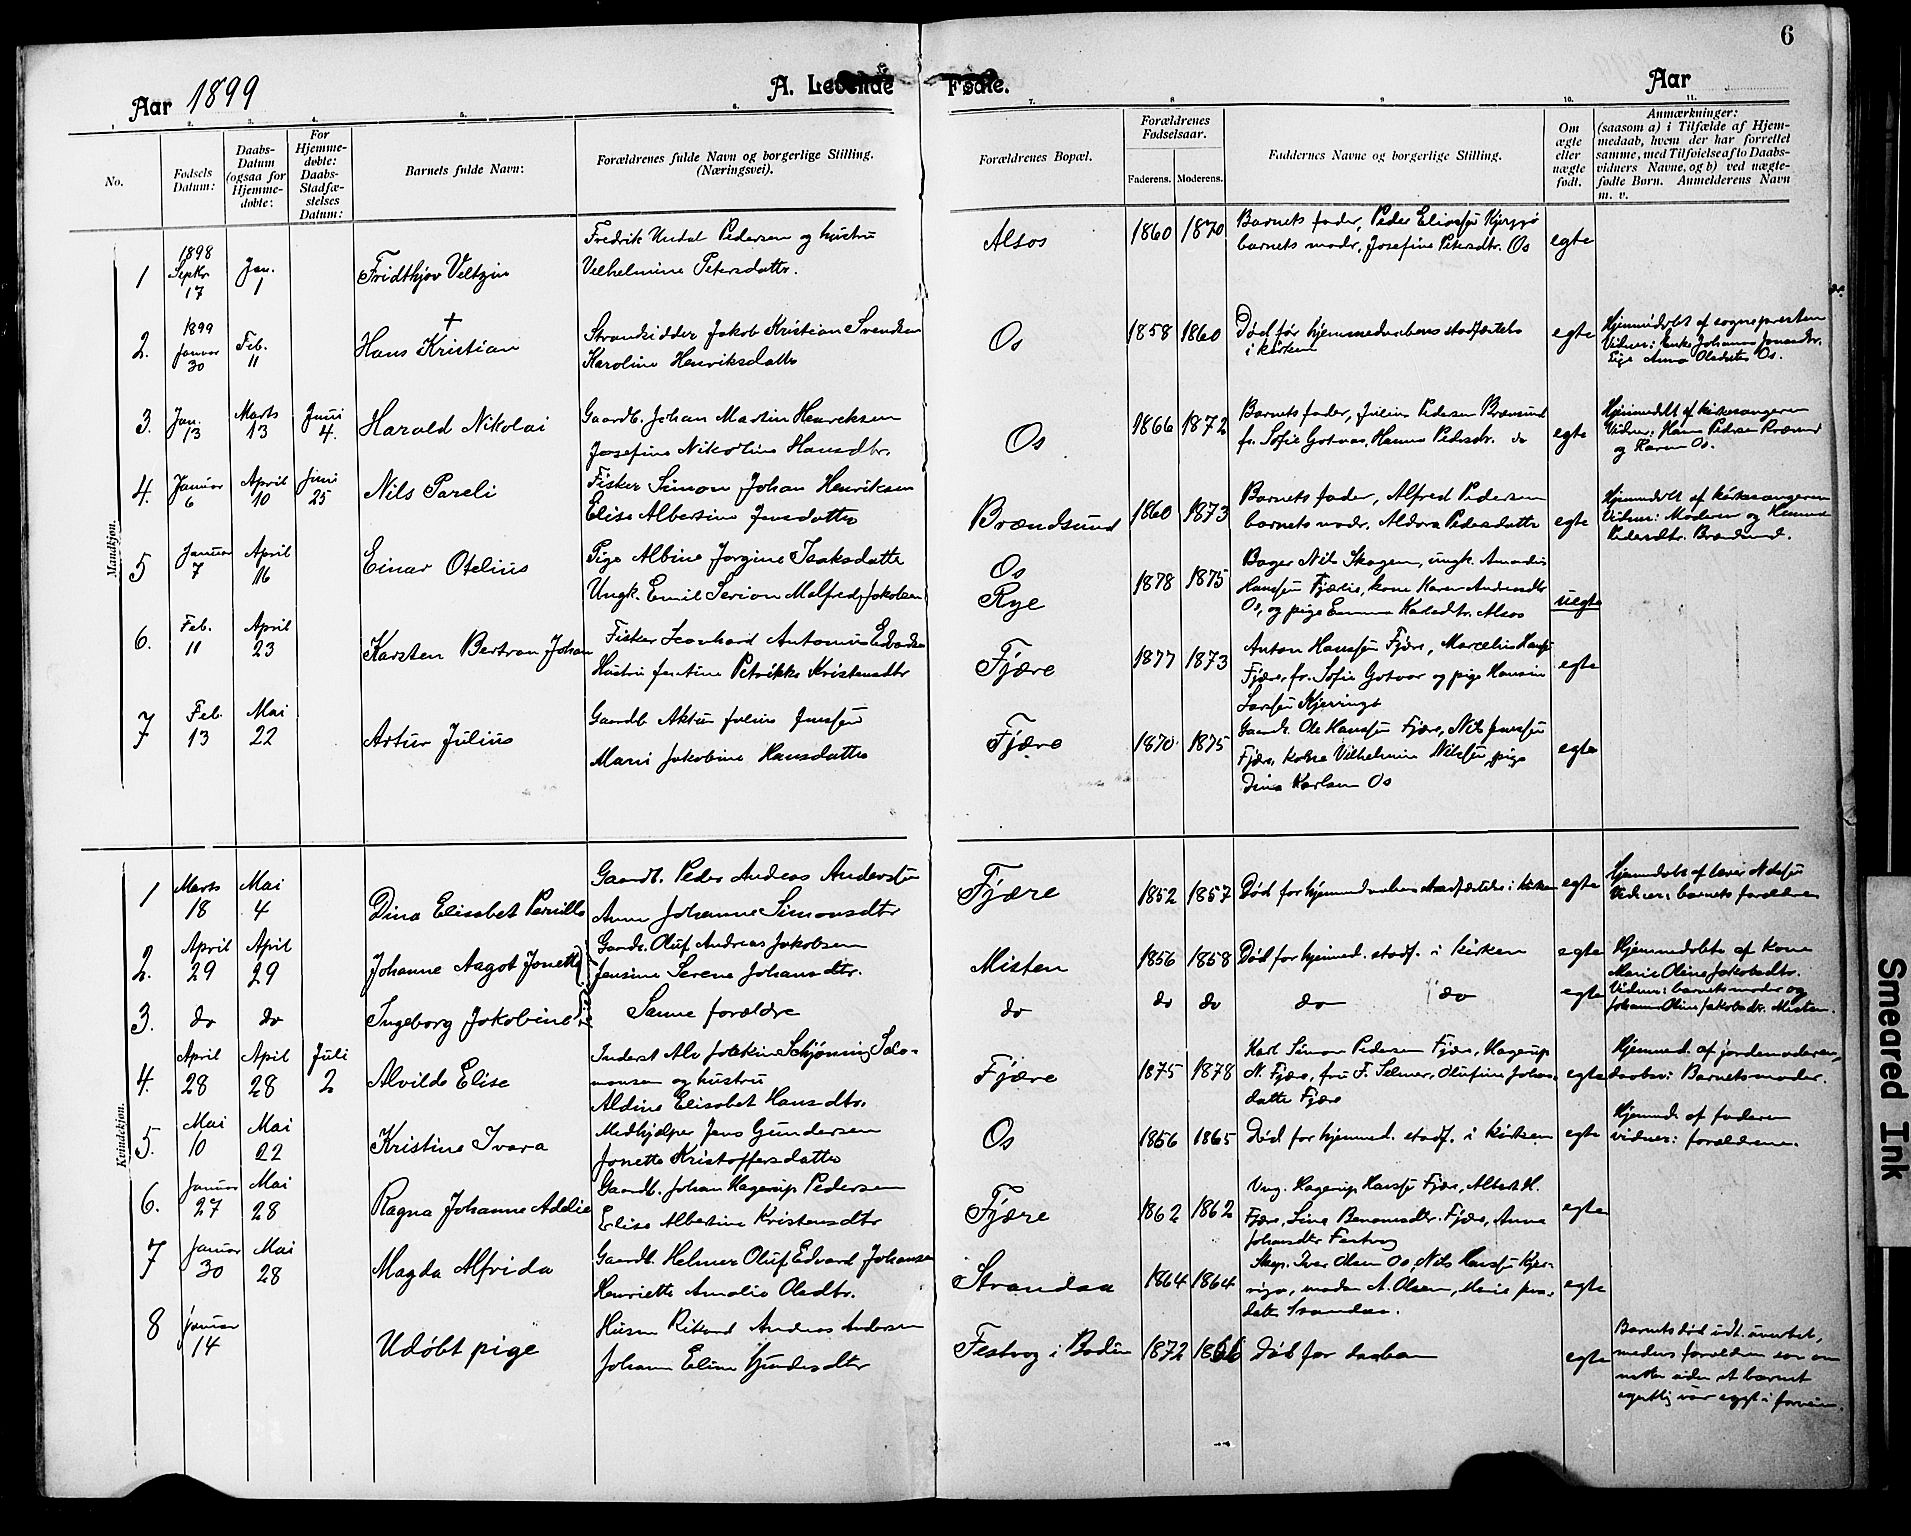 6
Aar 1899
A. Levende Fødte.
Aar
1. 2. 3. 4. 5. 6. 7. 8 9 10. 11.
No.
Fødsels Datum:
Daabs-Datum (ogsaa for Hjemme-døbte:
For Hjemme-døbte: Daabs-Stadfæ-stelses Datum:
Barnets fulde Navn:
Forældrenes fulde Navn og borgerlige Stilling. (Næringsvei).
Forældrenes Bopæl.
Forældrenes Fødselsaar.
Faderens. Moderens.
Faddernes Navne og borgerlige Stilling.
Om ægte eller nægte født.
Anmærkninger: (saasom a) i Tilfælde af Hjem-medaab, hvem der har forrettet samme, med Tilføielse af to Daabs-vidners Navne, og b) ved nægte-fødte Børn. Anmelderens Navn m. v.
Mandkjøn.
1 1898 Septbr. 17 Jan. 1 Fridthjov Veltzin
Fredrik Undal Pedersen og hustru
Vilhelmine Petersdattr.
Alsos 1860 1870
Barnets fader, Peder Eliassen
barnets modr, Josefine Petersdtr. Os
egte
2. 1899 Januar 30 Feb. 11 Hans Kristian
Strandsidder Jakob Kristian Svendsen
Karoline Henriksdatter
Os 1858 1860
Død før hjemmedaabens stadfæstelse
i kirken
egte
Hjemmedøbt af sognepresten
Vidner: Enke Johanna
Anna Os.
3. Jan. 13 Marts 13 Juni 4. Harald Nikolai
Gaardb. Johan Martin Henriksen
Josefine Nikoline Hansdtr.
Os 1866 1872
Barnets fader, Julius Pedersen Brænsund
fr. Sofie Gotvas, Hanna Pedersdtr. do
egte
Hjemmedøbt af kirkesangeren
Vidner: Hans Pedersen
og Karen Os.
4. Januar 6 April 10 Juni 25 Nils Pareli
Fisker Simon Johan Henriksen
Elise Albertine Jensdatter
Brændsund 1860 1873
Barnets fader, Alfred Pedersen
barnets modr, Aldora Pedersdatter
egte
Hjemmedøbt af kirkesangeren
Vidner: Moderen og
Pedersdtr. Brændsund.
5 Januar 7 April 16 Einar Otelius
Pige Albine Jorgine Isaksdatter
Ungk. Emil Serion Malfred Jakobsen
Os
Rye
1878 1875
Bager Nils Skogen, ungk.
Hanssen Fjære, kone Karen
Os, og pige Emma Karlsdtr. Alsos
uegte
6. Feb. 11 April 23 Karsten Bertran Johan
Fisker Leonhard Antonius Edvardsen
Hustru Jentine Petrikke Kristensdtr
Fjære 1877 1873
Anton Hanssen Fjære, Marcelius Hanss.
Fjære, fr. Sofie Gotvar og pige
Larssen
egte
7 Feb. 13 Mai 22 Artur Julius
Gaardb. Aktur Julius Jenssen
Marie Jakobine Hansdatter
Fjære 1870 1875
Gaardb. Ole Hanssen Fjære, Nils Jenssen
Fjære, kone Vilhelmine Nilssen, pige
Dina Karlsen Os
egte
Kvindekjøn.
1 Marts 18 Mai 4 Dina Elisabet Pernille
Gaardb. Peder Andreas Anderssen
Anne Johanne Simonsdtr
Fjære 1852 1857
Død før hjemmedaabens stadfæstelse i kirken
egte
Hjemmedøbt af lærer Nilssen
Vidner: barnets forældre
2. April 29 April 29 Johanne Aagot Jonette
Gaardb. Oluf Andreas Jakobsen
Jensine Serene Johansdtr.
Misten 1856 1858
Død før hjemmed. stadf. i kirken
egte
Hjemmedøbte af kone
Marie Oline Jakobsdtr.
Vidner: barnets moder og
Johanna Oline Jakobsdtr. Misten.
3. do do Ingeborg Jakobine
Samme forældre
do do do do do
egte
4. April 28 April 28 Juli 2 Alvilde Elise
Inderst Alv Joakim Schjønning Salo-
monsen og hustru
Aldine Elisabet Hansdtr.
Fjære 1875 1878
Karl Simon Pedersen Fjære, Hagerup
N. Fjære, fru F. Selmer, Olufine Johans-
datter Fjære
egte
Hjemmed. af jordemoderen,
daabsv: Barnets moder.
5. Mai 10 Mai 22 Kristine Ivara
Medhjælper Jens Gundersen
Jonette Kristoffersdatter
Os 1856 1865
Død før hjemmed. stadf. i kirken
egte
Hjemmed. af faderen
vidner: forældrene.
6. Januar 27 Mai 28 Ragna Johanne Adelie
Gaardb. Johan Hagerup Pedersen
Elise Albertine Kristensdtr
Fjære 1862 1862
Ung. Hagerup Hanssen Fjære, Albert H.
Fjære, Sine Benonisdtr. Fjære, Anna
Johansdtr Festvog
egte
7 Januar 30 Mai 28 Magda Alfrida
Gaardb. Helmer Oluf Edvard Johansen
Henriette Amalie Olsdtr.
Strandaa 1864 1864
Skyp. Iver Olsen Os, Nils Hanssen
madam A. Olsen, Marie
datter Strandaa.
egte
8 Januar 14 Udøbt pige
Husm Rikard Andreas Andersen
Johanna Eline
Festvog i Bodin 1872 1866
Død før daaben
egte
Barnets død indt. uventet,
medens forældrene var
barnet
i forveien.
Smeared Ink